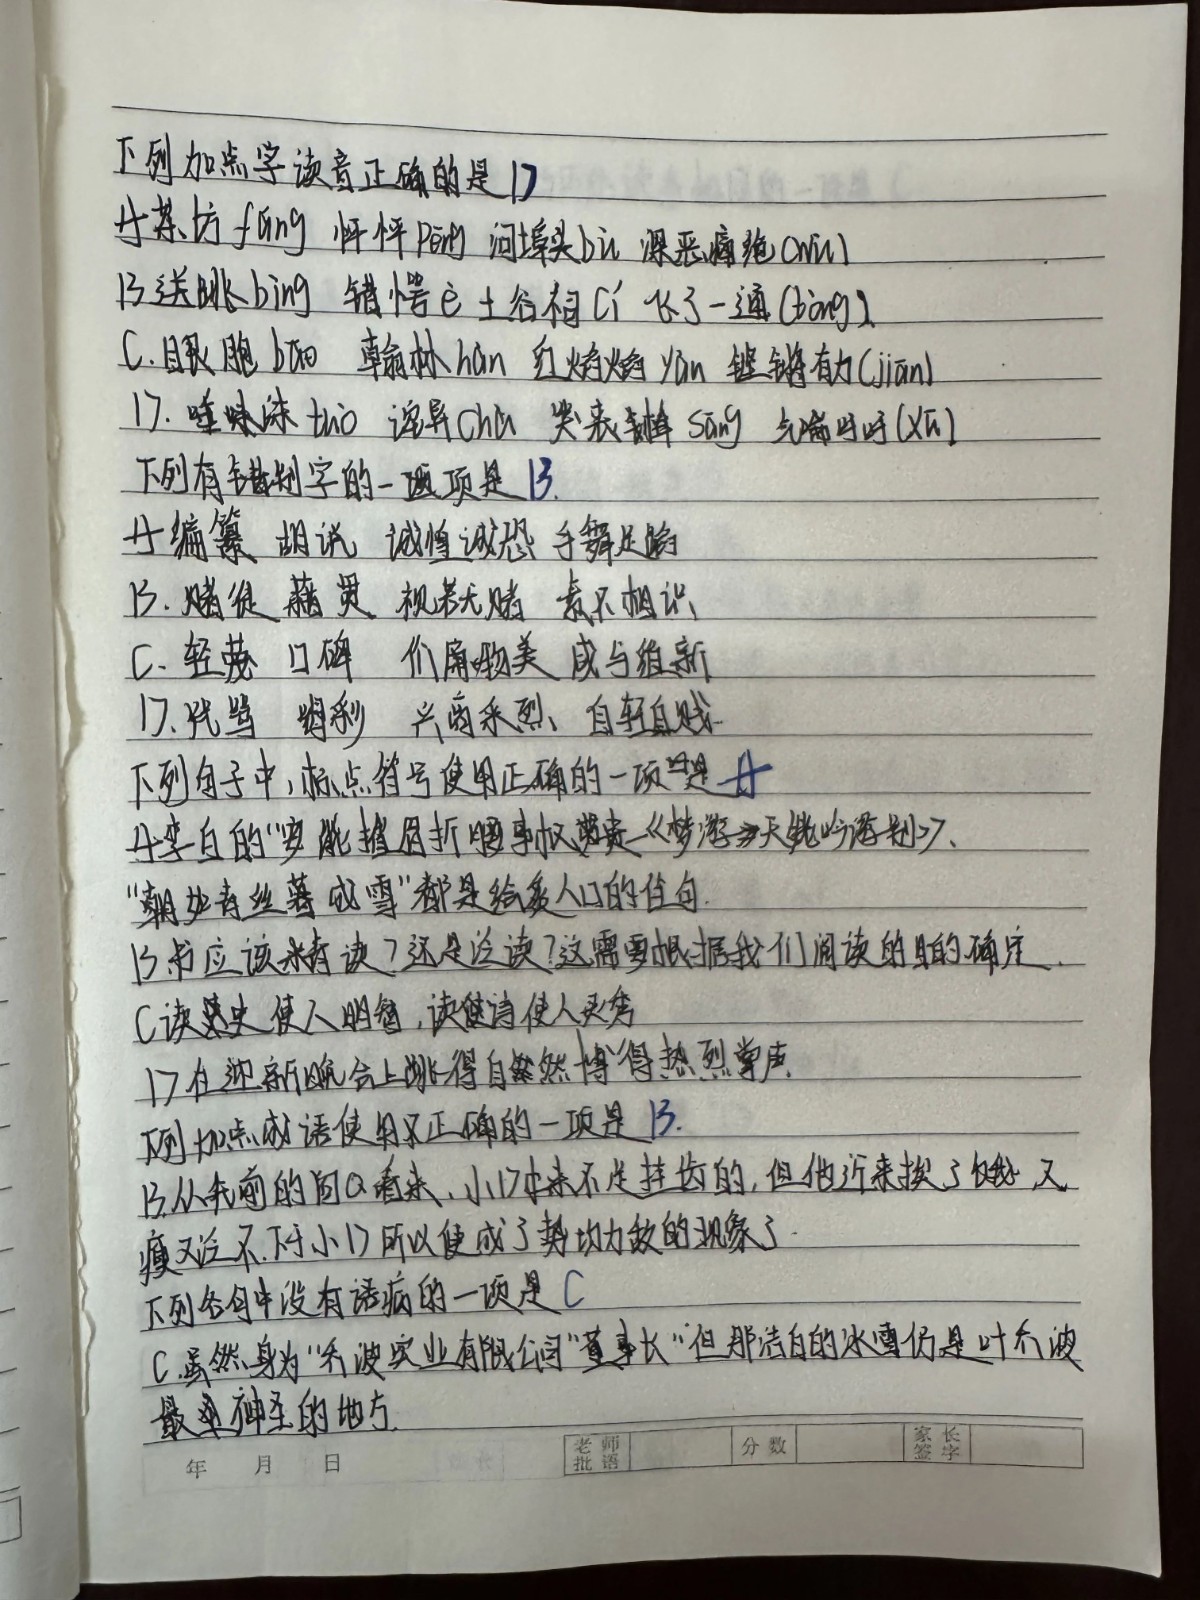 下列加点字读音正确的是D
A茶坊fāng 怦怦pēng 河埠头bù 深恶痛绝(wù)
B送 bìng 错愕è 土谷祠cí 飞了一通(tòng)
C.眼胞bāo 翰林hàn 红焰焰yàn 铿锵有力(jiān)
D.唾沫 tuò 诧异chà 哭丧棒sāng 气喘吁吁(xū)
下列有错别字的一项是B.
A编纂 胡说 诚惶诚恐 手舞足蹈
B.赌徒 籍贯 视若无赌 素不相识
C.轻蔑 口碑 物美 咸与维新
D.咒骂 兴高采烈、自轻自贱.
下列句子中,标点符号使用正确的一项是A
A李白的"安能摧眉折腰事权贵《梦游天姥吟留别》、
"朝如青丝暮成雪"都是脍炙人口的佳句.
B书应该精读?还是泛读?这需要根据我们阅读的目的确定.
C读史使人明智,读诗使人灵秀
D在迎新晚会上跳得自然博得热烈掌声
下列加点成语使用不正确的一项是B.
B.从先前的阿Q看来,小D本来不足挂齿的,但他近来挨了饿,又
瘦又 不下于小D所以便成了势均力敌的现象了.
下列各句中没有语病的一项是C
C.虽然身为"乔波实业有限公司"董事长"但那洁白的冰雪仍是叶乔波
最神圣的地方.
年 月 日 老师批语 分数 家长签字